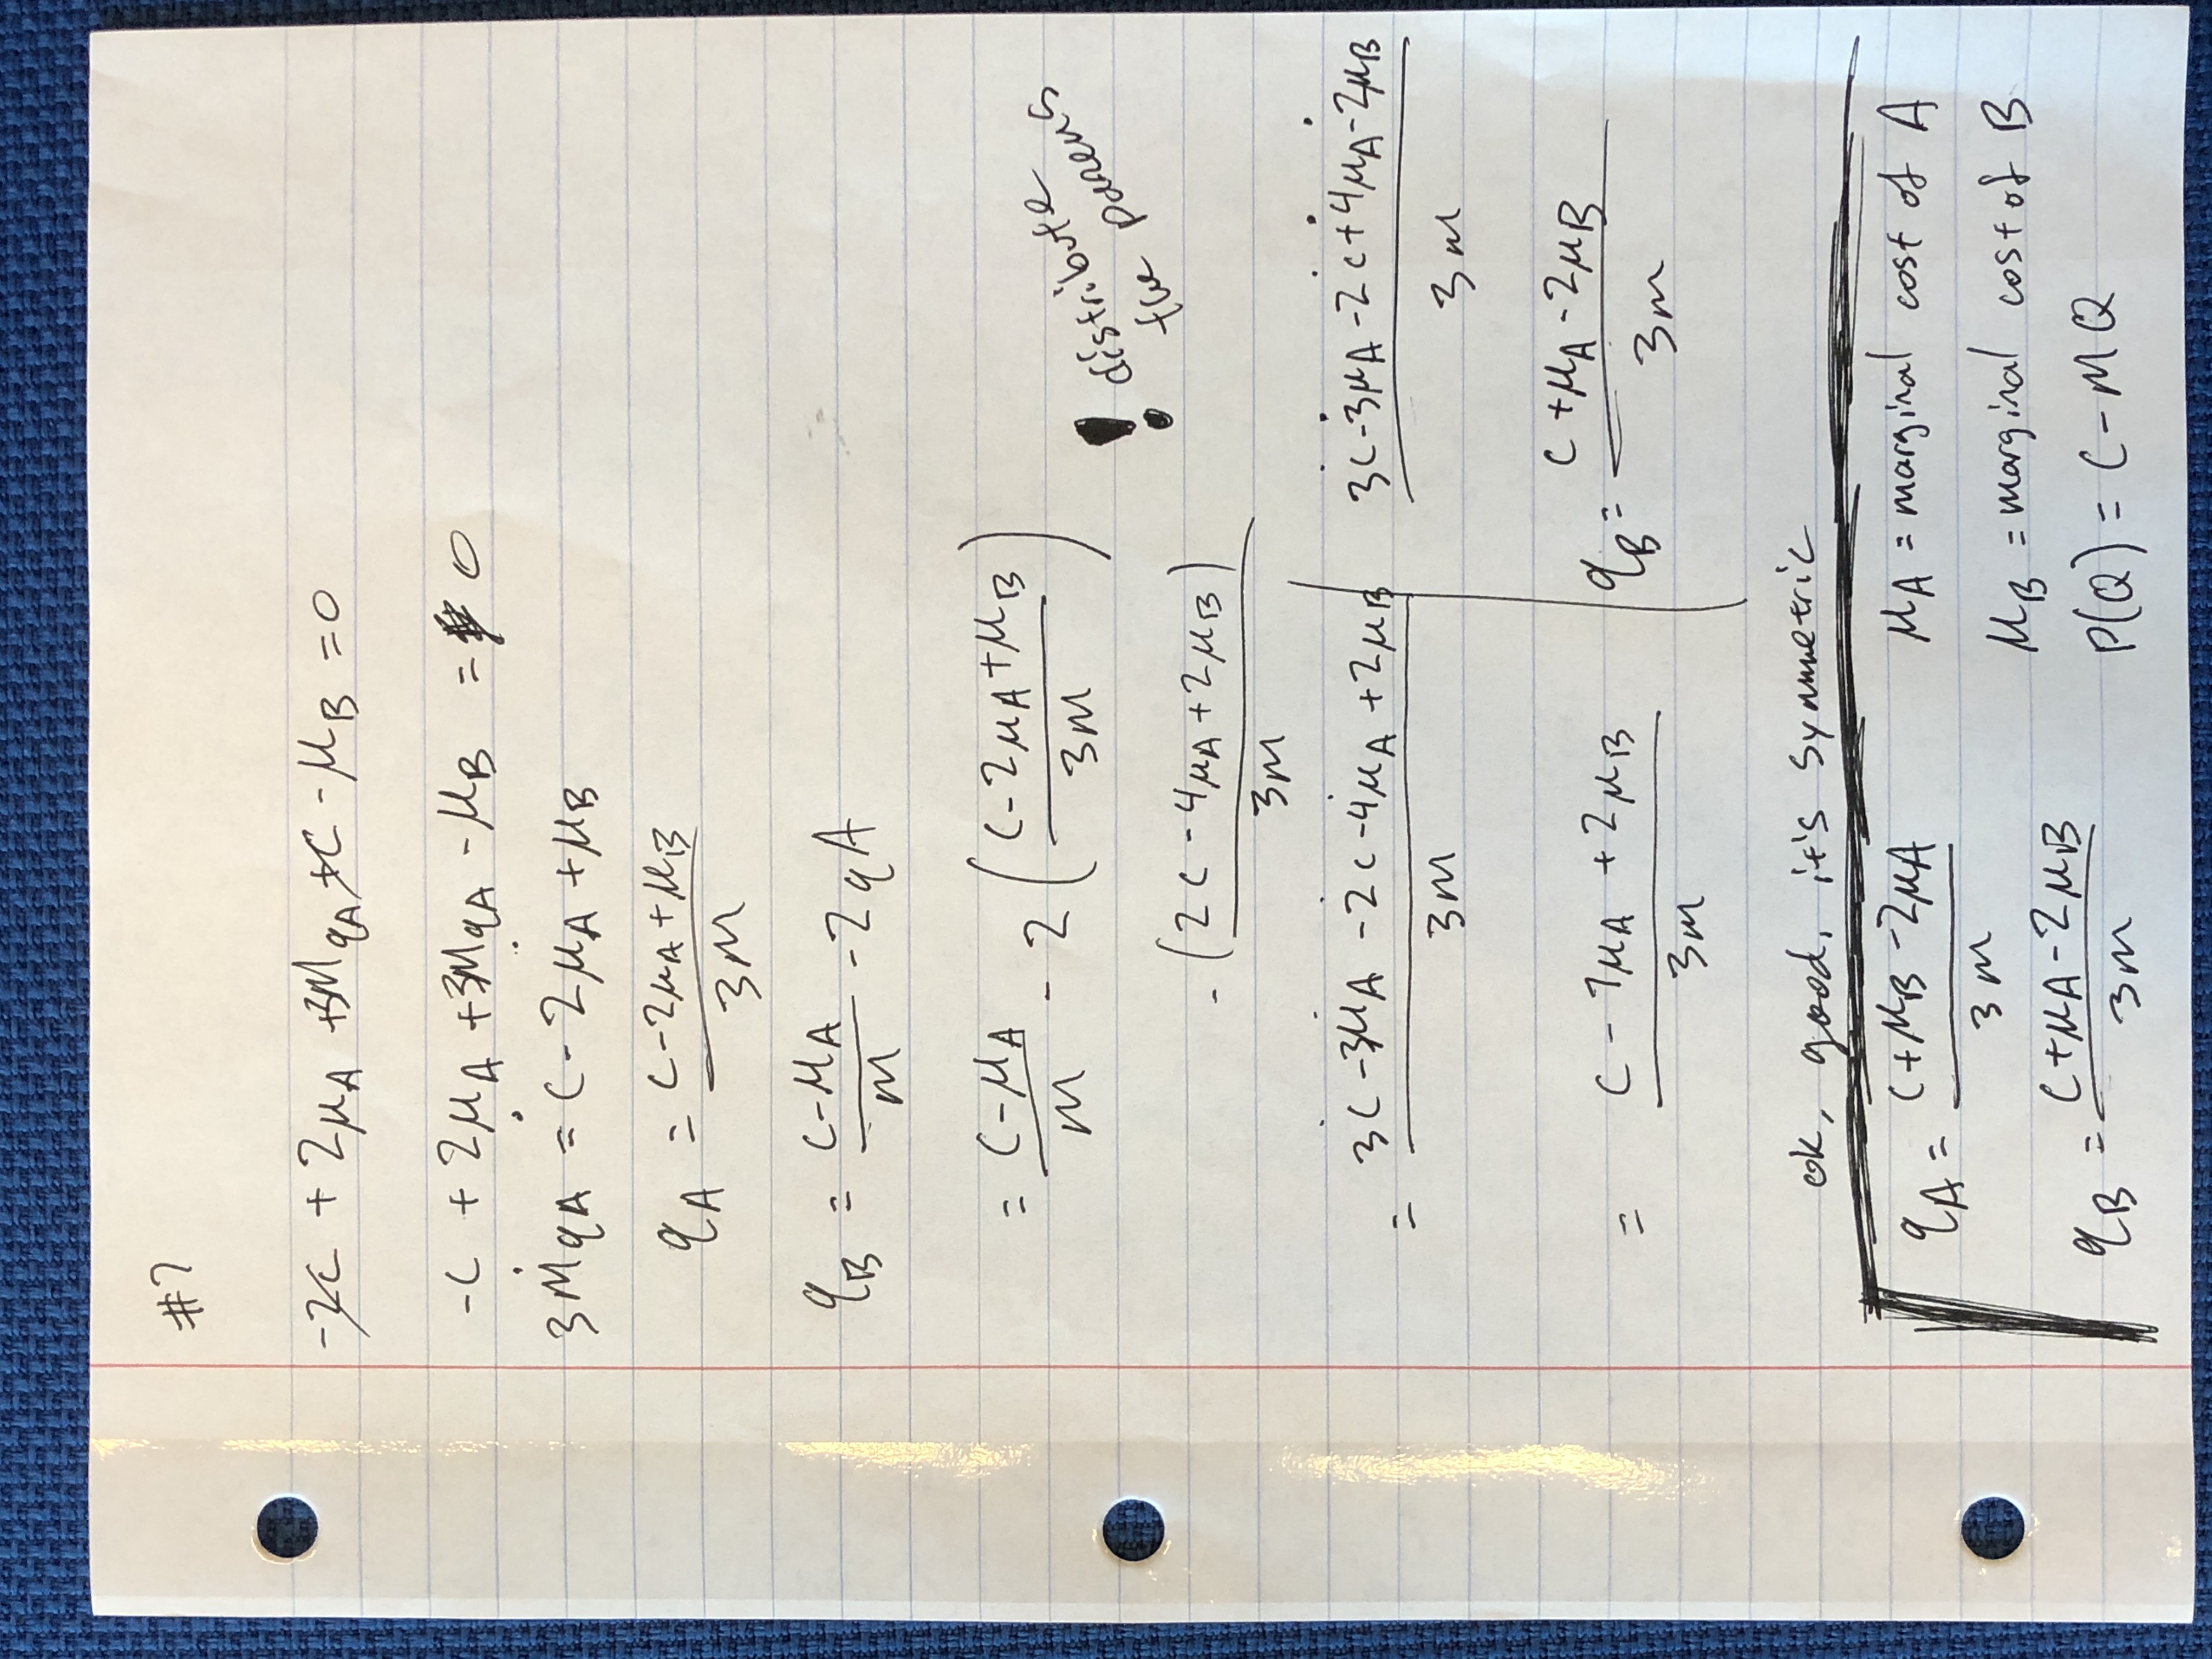 #7
-2C + 2μA + 3MqA + C - μB = 0
-C + 2μA + 3MqA - μB = 0
3MqA = C - 2μA + μB
qA = (C - 2μA + μB) / 3M
qB = (C - μA) / M - 2qA
= (C - μA) / M - 2 ((C - 2μA + μB) / 3M)
! distribute
the parens
- (2C - 4μA + 2μB) / 3M
= (3C - 3μA - 2C - 4μA + 2μB) / 3M
(3C - 3μA - 2C + 4μA - 2μB) / 3M
= (C - 7μA + 2μB) / 3M
qB = (C + μA - 2μB) / 3M
ok, good, it's symmetric
qA = (C + μB - 2μA) / 3M
μA = marginal cost of A
μB = marginal cost of B
qB = (C + μA - 2μB) / 3M
P(Q) = C - MQ